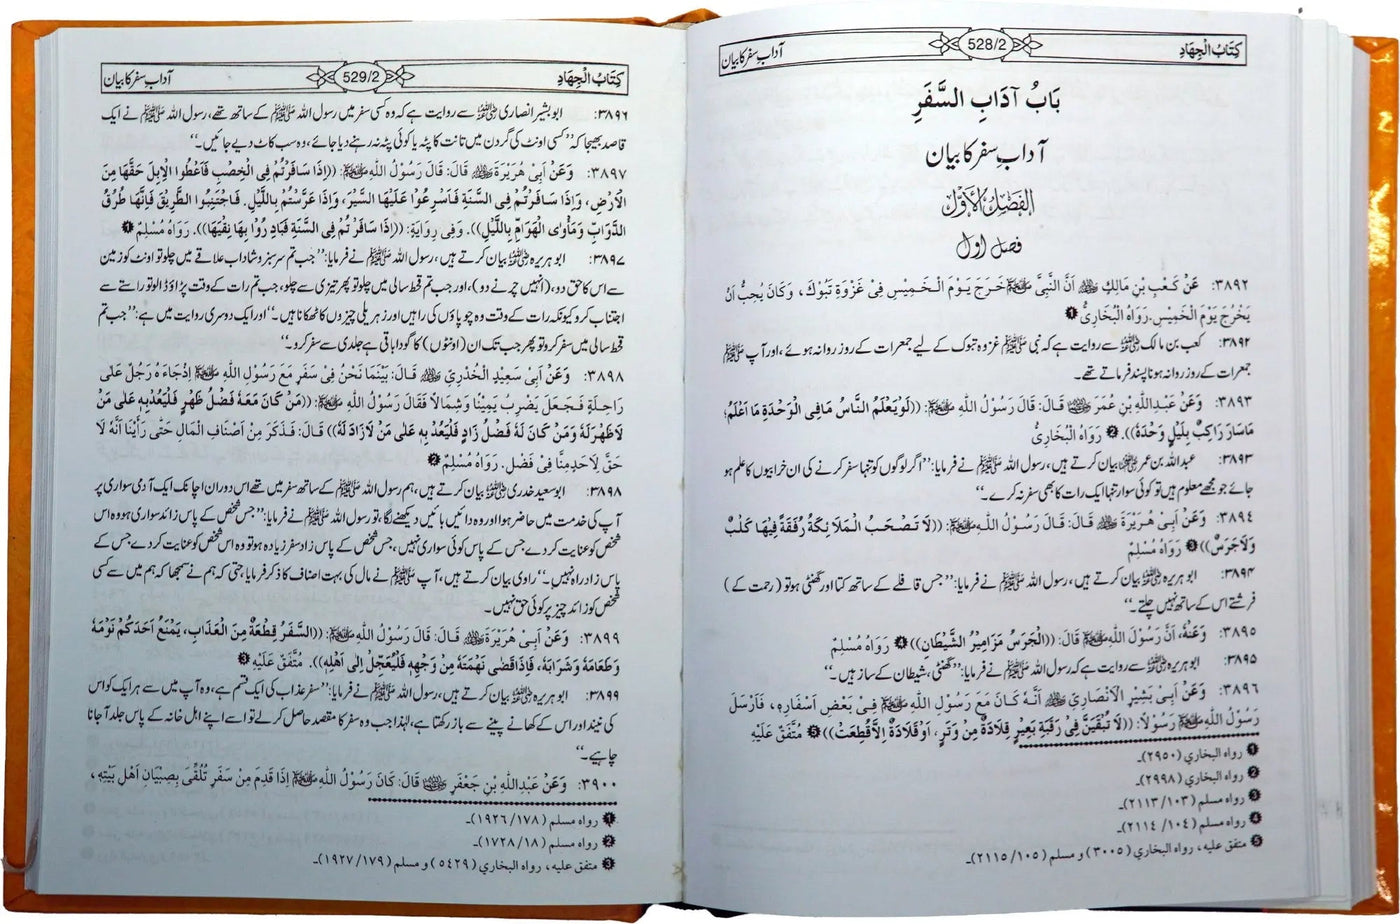 كِتَابُ الْجِهَادِ 528/2 آدابِ سفر کا بیان
بَابُ آدَابِ السَّفَرِ
آداب سفر کا بیان
الفَصْلُ الأَوَّل
فصل اول
۳۸۹۲: عَنْ كَعْبِ بْنِ مَالِكٍ ؓ أَنَّ النَّبِيَّ ﷺ خَرَجَ يَوْمَ الْخَمِيْسِ فِيْ غَزْوَةِ تَبُوْكَ، وَكَانَ يُحِبُّ اَنْ
يَخْرُجَ يَوْمَ الْخَمِيْسِ. رَوَاهُ الْبُخَارِيُّ ❶
۳۸۹۲: کعب بن مالک ؓ سے روایت ہے کہ نبی ﷺ غزوہ تبوک کے لیے جمعرات کے روز روانہ ہوئے، اور آپ ﷺ
جمعرات کے روز روانہ ہونا پسند فرماتے تھے۔
۳۸۹۳: وَعَنْ عَبْدِاللهِ بْنِ عُمَرَ ؓ قَالَ: قَالَ رَسُوْلُ اللهِ ﷺ: ((لَوْ يَعْلَمُ النَّاسُ مَا فِي الْوَحْدَةِ مَا اَعْلَمُ؛
مَاسَارَ رَاكِبٌ بِلَيْلٍ وَحْدَهُ)). ❷ رَوَاهُ الْبُخَارِيُّ
۳۸۹۳: عبداللہ بن عمر ؓ بیان کرتے ہیں، رسول اللہ ﷺ نے فرمایا: ’’اگر لوگوں کو تنہا سفر کرنے کی ان خرابیوں کا علم ہو
جائے جو مجھے معلوم ہیں تو کوئی سوار تنہا ایک رات کا بھی سفر نہ کرے۔‘‘
۳۸۹۴: وَعَنْ اَبِيْ هُرَيْرَةَ ؓ قَالَ: قَالَ رَسُوْلُ اللهِ ﷺ: ((لَا تَصْحَبُ الْمَلَائِكَةُ رُفْقَةً فِيْهَا كَلْبٌ
وَلَاجَرَسٌ)) ❸ رَوَاهُ مُسْلِمٌ
۳۸۹۴: ابو ہریرہ ؓ بیان کرتے ہیں، رسول اللہ ﷺ نے فرمایا: ’’جس قافلے کے ساتھ کتا اور گھنٹی ہو تو (رحمت کے)
فرشتے اس کے ساتھ نہیں چلتے۔‘‘
۳۸۹۵: وَعَنْهُ، اَنَّ رَسُوْلَ اللهِ ﷺ قَالَ: ((الْجَرَسُ مَزَامِيْرُ الشَّيْطَانِ)) ❹ رَوَاهُ مُسْلِمٌ
۳۸۹۵: ابو ہریرہ ؓ سے روایت ہے کہ رسول اللہ ﷺ نے فرمایا: ’’گھنٹی، شیطان کے ساز ہیں۔‘‘
۳۸۹۶: وَعَنْ اَبِيْ بَشِيْرٍ الْاَنْصَارِيِّ ؓ اَنَّهُ كَانَ مَعَ رَسُوْلِ اللهِ ﷺ فِيْ بَعْضِ اَسْفَارِهٖ، فَاَرْسَلَ
رَسُوْلُ اللهِ ﷺ رَسُوْلًا: ((لَا تُبْقَيَنَّ فِيْ رَقَبَةِ بَعِيْرٍ قِلَادَةٌ مِنْ وَتَرٍ، اَوْ قِلَادَةٌ اِلَّا قُطِعَتْ)) ❺ مُتَّفَقٌ عَلَيْهِ
❶ رواه البخاري (٢٩٥٠)۔
❷ رواه البخاري (٢٩٩٨)۔
❸ رواه مسلم (١٠٣/ ٢١١٣)۔
❹ رواه مسلم (١٠٤/ ٢١١٤)۔
❺ متفق عليه، رواه البخاري (٣٠٠٥) و مسلم (١٠٥/ ٢١١٥)۔
كِتَابُ الْجِهَادِ 529/2 آدابِ سفر کا بیان
۳۸۹۶: ابو بشیر انصاری ؓ سے روایت ہے کہ وہ کسی سفر میں رسول اللہ ﷺ کے ساتھ تھے، رسول اللہ ﷺ نے ایک
قاصد بھیجا کہ ’’کسی اونٹ کی گردن میں تانت کا پٹہ یا کوئی پٹہ نہ رہنے دیا جائے، وہ سب کاٹ دیے جائیں۔‘‘
۳۸۹۷: وَعَنْ اَبِيْ هُرَيْرَةَ ؓ قَالَ: قَالَ رَسُوْلُ اللهِ ﷺ: ((اِذَا سَافَرْتُمْ فِي الْخِصْبِ فَاَعْطُوا الْاِبِلَ حَقَّهَا مِنَ
الْاَرْضِ، وَاِذَا سَافَرْتُمْ فِي السَّنَةِ فَاَسْرِعُوْا عَلَيْهَا السَّيْرَ، وَاِذَا عَرَّسْتُمْ بِاللَّيْلِ. فَاجْتَنِبُوا الطَّرِيْقَ فَاِنَّهَا طُرُقُ
الدَّوَابِّ وَمَأْوَى الْهَوَامِّ بِاللَّيْلِ)). وَفِيْ رِوَايَةٍ: ((اِذَا سَافَرْتُمْ فِي السَّنَةِ فَبَادِرُوْا بِهَا نِقْيَهَا)). رَوَاهُ مُسْلِمٌ ❶
۳۸۹۷: ابو ہریرہ ؓ بیان کرتے ہیں، رسول اللہ ﷺ نے فرمایا: ’’جب تم سرسبز و شاداب علاقے میں چلو تو اونٹ کو زمین
سے اس کا حق دو، (انہیں چرنے دو)، اور جب تم قحط سالی میں چلو تو پھر تیزی سے چلو، جب تم رات کے وقت پڑاؤ ڈالو تو راستے سے
اجتناب کرو کیونکہ رات کے وقت وہ چوپاؤں کی راہیں اور زہریلی چیزوں کا ٹھکانا ہیں۔‘‘ اور ایک دوسری روایت میں ہے: ’’جب تم
قحط سالی میں سفر کرو تو پھر جب تک ان (اونٹوں) کا گودا باقی ہے جلدی سے سفر کرو۔‘‘
۳۸۹۸: وَعَنْ اَبِيْ سَعِيْدٍ الْخُدْرِيِّ ؓ قَالَ: بَيْنَمَا نَحْنُ فِيْ سَفَرٍ مَعَ رَسُوْلِ اللهِ ﷺ اِذْجَاءَهُ رَجُلٌ عَلٰى
رَاحِلَةٍ فَجَعَلَ يَضْرِبُ يَمِيْنًا وَشِمَالًا فَقَالَ رَسُوْلُ اللهِ ﷺ: ((مَنْ كَانَ مَعَهُ فَضْلُ ظَهْرٍ فَلْيَعُدْبِهِ عَلٰى مَنْ
لَاظَهْرَلَهُ وَمَنْ كَانَ لَهُ فَضْلُ زَادٍ فَلْيَعُدْ بِهِ عَلٰى مَنْ لَازَادَ لَهُ)) قَالَ: فَذَكَرَ مِنْ اَصْنَافِ الْمَالِ حَتّٰى رَأَيْنَا اَنَّهُ لَا
حَقَّ لِاَحَدٍ مِنَّا فِيْ فَضْلٍ. رَوَاهُ مُسْلِمٌ ❷
۳۸۹۸: ابو سعید خدری ؓ بیان کرتے ہیں، ہم رسول اللہ ﷺ کے ساتھ سفر میں تھے اس دوران اچانک ایک آدمی سواری پر
آپ کی خدمت میں حاضر ہوا اور وہ دائیں بائیں دیکھنے لگا، تو رسول اللہ ﷺ نے فرمایا: ’’جس شخص کے پاس زائد سواری ہو وہ اس
شخص کو عنایت کر دے جس کے پاس کوئی سواری نہیں، جس شخص کے پاس زاد سفر زیادہ ہو تو وہ اس شخص کو عنایت کر دے جس کے
پاس زاد راہ نہیں۔‘‘ راوی بیان کرتے ہیں، آپ ﷺ نے مال کی بہت اصناف کا ذکر فرمایا، حتی کہ ہم نے سمجھا کہ ہم میں سے کسی
شخص کو زائد چیز پر کوئی حق نہیں۔
۳۸۹۹: وَعَنْ اَبِيْ هُرَيْرَةَ ؓ قَالَ: قَالَ رَسُوْلُ اللهِ ﷺ: ((السَّفَرُ قِطْعَةٌ مِنَ الْعَذَابِ، يَمْنَعُ اَحَدَكُمْ نَوْمَهُ
وَطَعَامَهُ وَشَرَابَهُ، فَاِذَاقَضٰى نَهْمَتَهُ مِنْ وَجْهِهِ فَلْيُعَجِّلْ اِلٰى اَهْلِهِ)). مُتَّفَقٌ عَلَيْهِ ❸
۳۸۹۹: ابو ہریرہ ؓ بیان کرتے ہیں، رسول اللہ ﷺ نے فرمایا: ’’سفر عذاب کی ایک قسم ہے، وہ آپ میں سے ہر ایک کو اس
کی نیند اور اس کے کھانے پینے سے باز رکھتا ہے، لہٰذا جب وہ سفر کا مقصد حاصل کر لے تو اسے اپنے اہل خانہ کے پاس جلد آ جانا
چاہیے۔‘‘
۳۹۰۰: وَعَنْ عَبْدِاللهِ بْنِ جَعْفَرٍ ؓ قَالَ: كَانَ رَسُوْلُ اللهِ ﷺ اِذَا قَدِمَ مِنْ سَفَرٍ تُلُقِّيَ بِصِبْيَانِ اَهْلِ بَيْتِهِ،
❶ رواه مسلم (١٧٨/ ١٩٢٦)۔
❷ رواه مسلم (١٨/ ١٧٢٨)۔
❸ متفق عليه، رواه البخاري (٥٤٢٩) و مسلم (١٧٩/ ١٩٢٧)۔